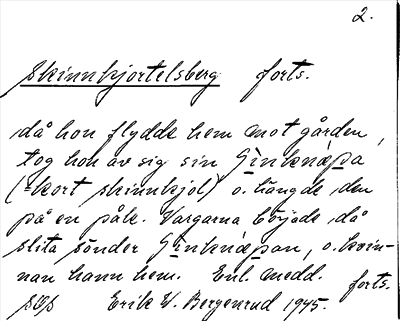 2.
Skinnkjortelsberg forts.
då hon flydde hem mot gården,
tog hon av sig sin Ginknäpa
(=kort skinnkjol) o. hängde den
på en påle. Vargarna började då
slita sönder Ginknäpan, o. kvin-
nan hann hem. Enl. medd. forts.
Erik W. Bergenrud 1945.